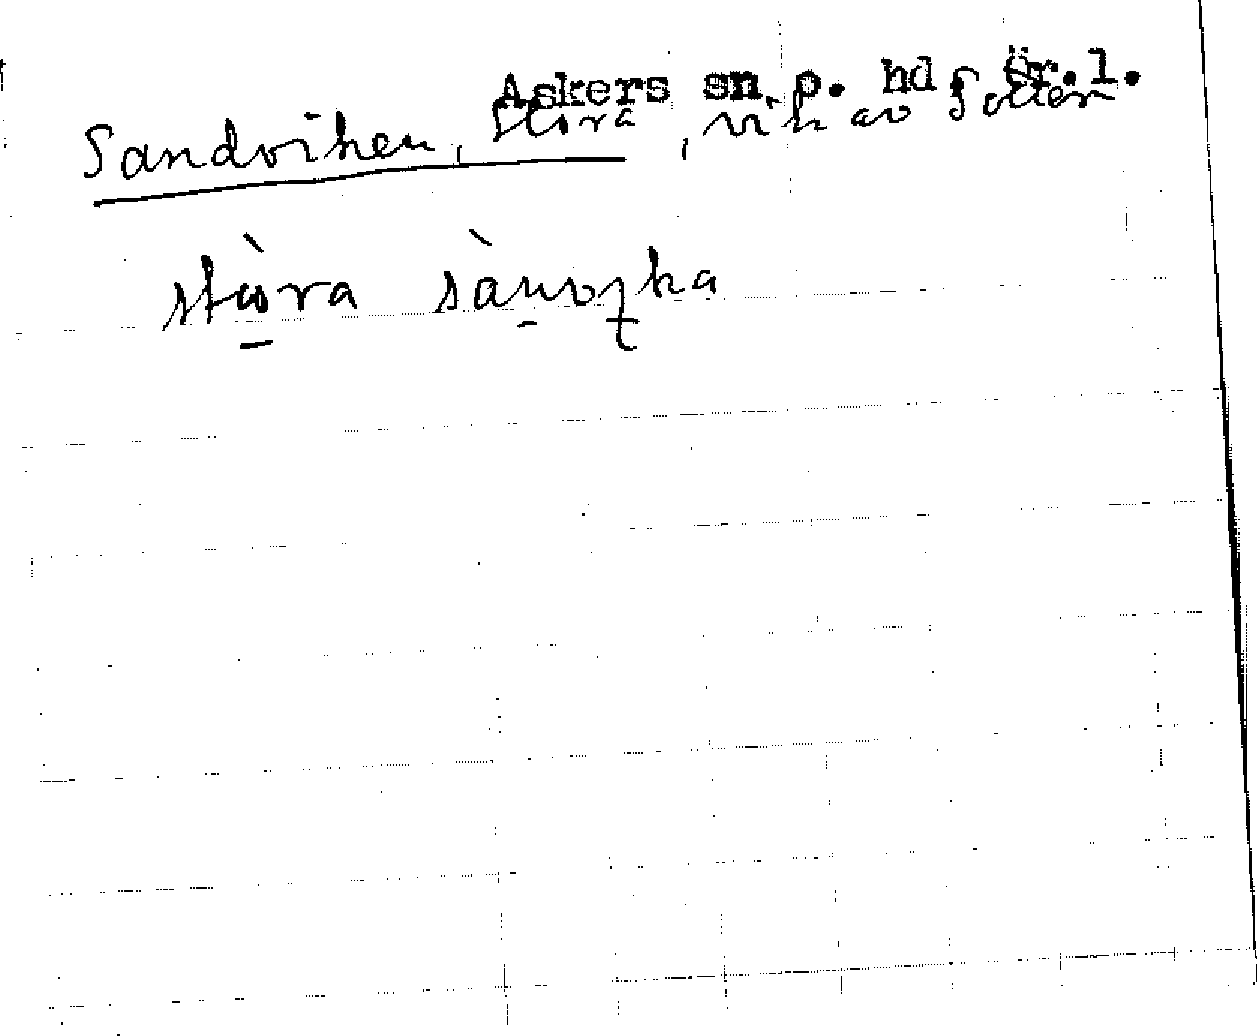 Askers sn. o. hd. Ör.l.
Sandviken, Stora, vik av Sottern
stora